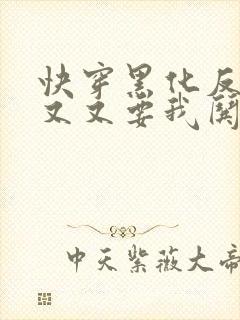 快穿黑化反
又又要我関
中天紫薇大帝